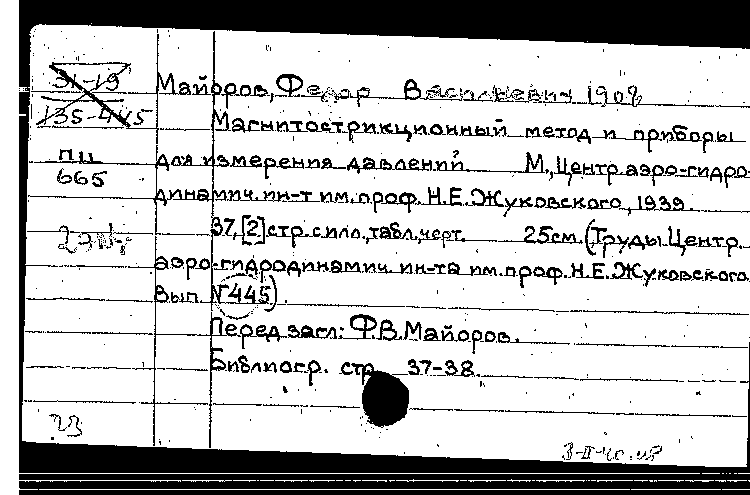 31-19
135-445
ПЦ
665
Майоров, Федор Васильевич 1908
Магнитострикционный метод и приборы
для измерения давлений. М., Центр. аэро-гидро-
динамич. ин-т им. проф. Н.Е. Жуковского, 1939.
37, [2] стр. с илл., табл., черт. 25см. (Труды Центр.
аэро-гидродинамич. ин-та им. проф. Н.Е. Жуковского.
Вып. №445).
Перед загл: Ф.В. Майоров.
Библиогр. стр. 37-38.
23